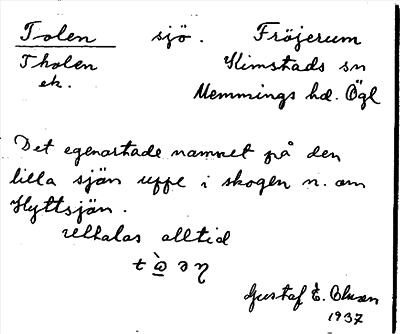 Tolen sjö. Fröjerum
Tholen Kimstads sn
ek. Memmings hd. Ögl
Det egenartade namnet på den
lilla sjön uppe i skogen n. om
Hyttsjön.
uttalas alltid
Gustaf E.
1937